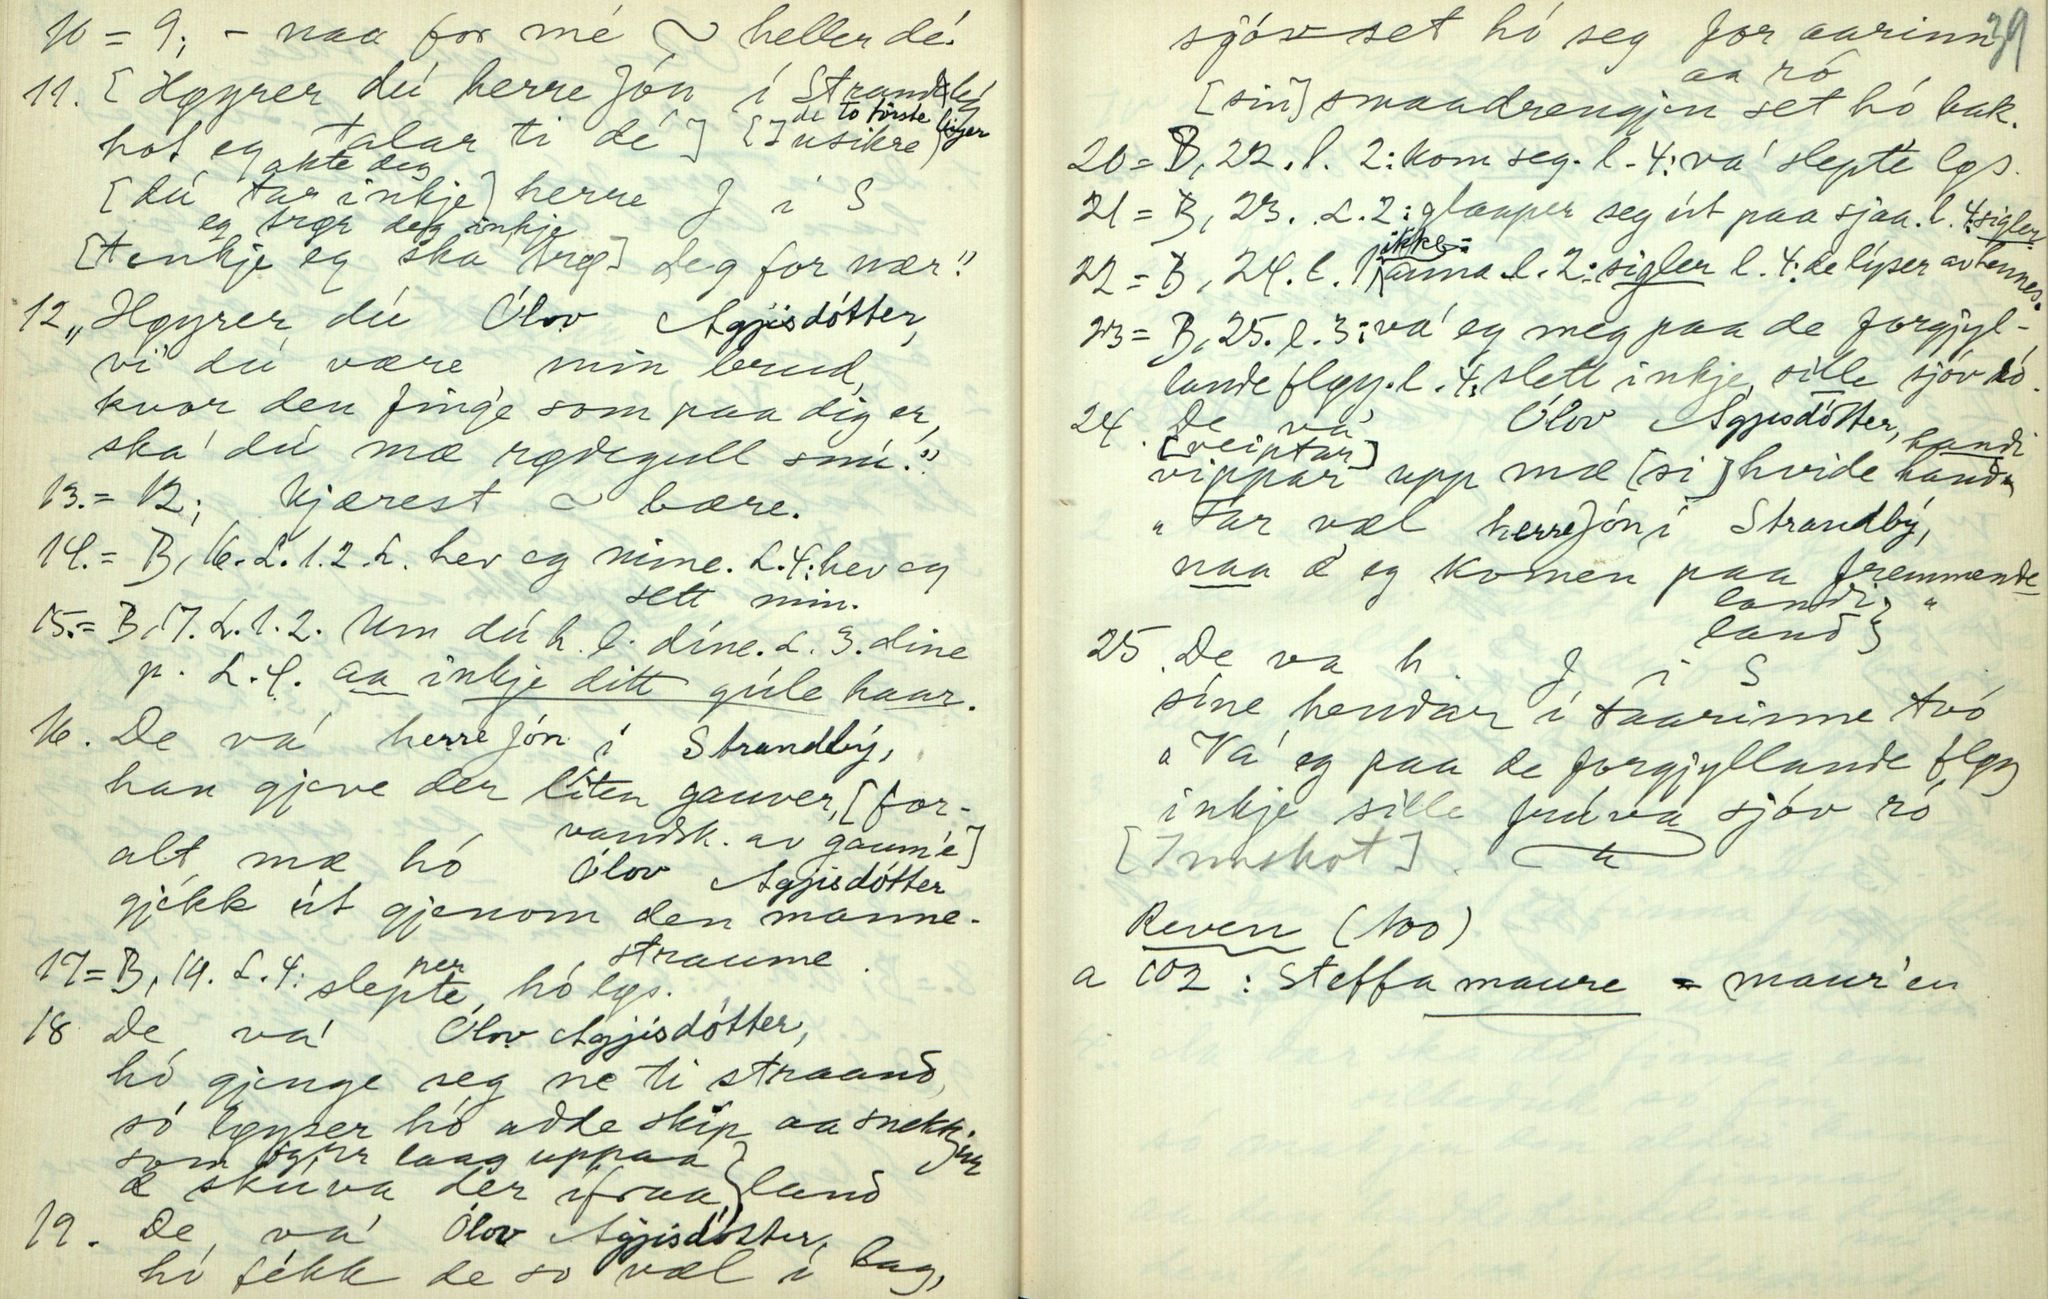 10 = 9; - naa for mé ~ heller dé.
11. [Høyrer dú herre Jón í Strandbý
hot eg talar ti dé] [ ] de to første linjer usikre
akte deg
[dú tar inkje] herre J i S
eg trør deg inkje
[tenkje eg ska trø] deg for nær."
12. „Høyrer dú Ólov Agjisdótter,
vi' dú være min brud,
kvor den finge som paa dig er,
ska' dú mæ rødegull snú."
13. = 12; kjærest ~ bære.
14. = B, 16. L. 1. 2. L. hev eg mine. L. 4: hev eg
sett min.
15. = B, 17. L. 1. 2. Um dú h. l. díne. L. 3. dine
p. L. 4. aa inkje ditt gúle haar.
16. De vá herre Jón í Strandbý,
han gjeve der líten gauver, [for-
vandsk. av gaum'e]
alt mæ hó Ólov Agjisdótter
gjekk út gjenom den manne-
straume.
17 = B, 19. L. 4: slepte per hó lgs.
18 De vá Ólov Agjisdótter,
hó gjenge seg ne ti straand,
só løyser hó adde skip aa snekkjur
som laag uppaa } land
æ skúva der ífraa
19. De vá Ólov Agjisdótter,
hó fékk de so væl í lag,
39
sjóv set hó seg for aarinn
aa ró
[sin] smaadrengjen set hó bak.
20 = B, 22. l. 2: kom seg. l. 4: vá slepte lgs.
21 = B, 23. L. 2: glaaper seg út paa sjaa. l. 4: sigler
22 = B, 24. l. 1 ikke: anna. l. 2: sigler l. 4: de lýser av hennes.
23 = B, 25. l. 3: vá eg meg paa de forgjyl-
lande fløy. l. 4: slett inkje sille sjóv ró.
24. De vá Ólov Agjisdótter,
[veiptar] handi
vippar upp mæ [si] hvide hand
„Far væl herre Jón í Strandbý,
naa æ eg komen paa fremmende
landi } "
land }
25. De va h. J i S
síne hendar í taarinne tvó
„Vá eg paa de forgjyllande fløy
inkje sille frúva sjóv ró"
[Innskot].
Reven (100)
a 102: Steffa maure = maur'en